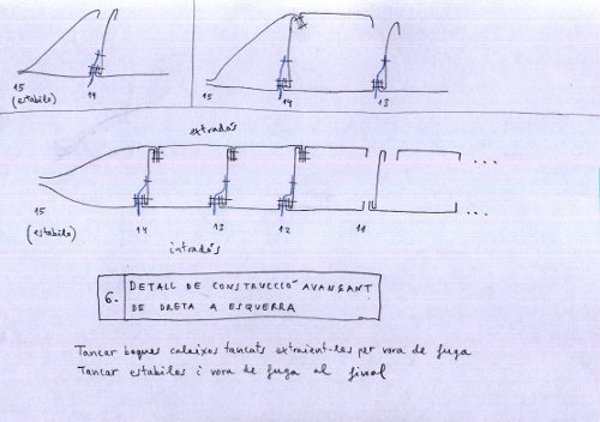 15 14
(estabilo)
15 14 13
extradós
... 
15
(estabilo)
14 13 12 11
...
intradós
6. DETALL DE CONSTRUCCIÓ AVANÇANT
DE DRETA A ESQUERRA
Tancar boques calaixos tancats extraient-les per vora de fuga
Tancar estabilos i vora de fuga al final